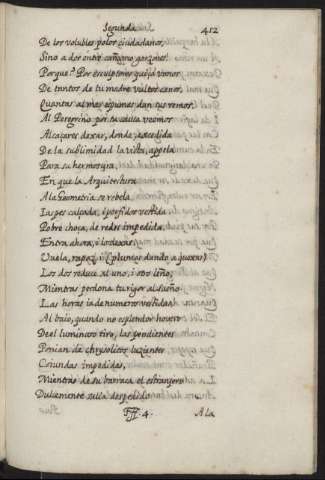 Segunda. 412
De los volubles polos ciudadanos,
Sino a dos entre cañamo garzones!
Porque? Por escultores quizà vanos
De tantos de tu madre vultos canos,
Quantas al mar espumas dan sus remos?
Al Peregrino por tu causa vemos
Alcaçares dexar, donde excedida
De la sublimidad la vista, appela
Para su hermosura,
En que la Arquitectura
A la Geometria se rebela
Iaspes calçada, i porfidos vestida
Pobre choça, de redes impedida
Entra ahora, i lo dexas?
Vuela, rapaz, i (plumas dando a quexas)
Los dos reduce al uno, i otro leño,
Mientras perdona tu rigor al sueño
Las horas ia de numeros vestidas,
Al baio, quando no esplendor hovero
De el luminoso tiro, las pendientes
Ponian de chrysolitos luzientes
Coiundas impedidas,
Mientras de su barraca el estrangero
Dulcemente salia despedido
FFf. 4. A la